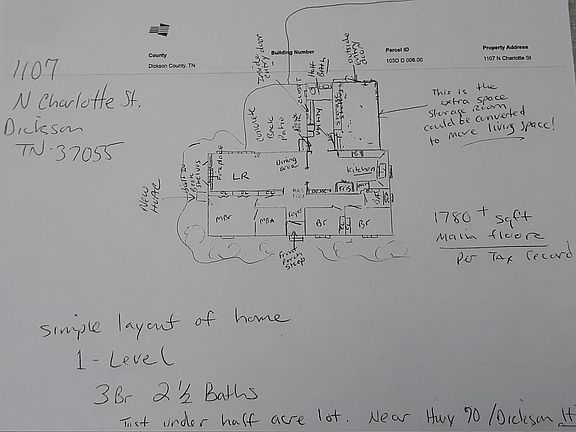 County
Dickson County, TN
Building Number
Parcel ID
103D D 006.00
Property Address
1107 N Charlotte St
1107
N Charlotte St.
Dickson
TN 37055
Inside door
Half
Bath
outside
entry
door
closet
utility
Concrete
Back
Patio
This is the
extra space
storage room
could be converted
to more living space!
Fireplace
Built in
Book
shelves
LR
Dining
area
Kitchen
New
HVAC
MBr
MBA
Foyer
Br
Br
Front
Porch
Steep
1780 + sqft
Main floor
Per Tax record
simple layout of home
1 - Level
3Br 2 1/2 Baths
Just under half acre lot. Near Hwy 70 / Dickson